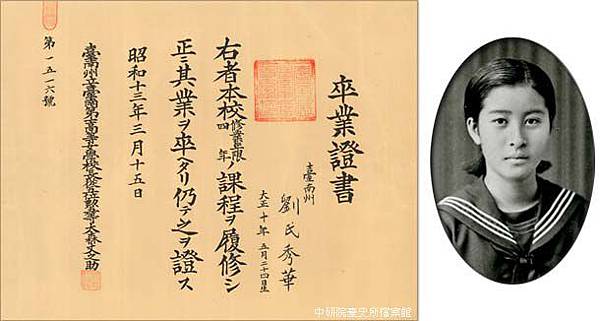 卒業證書
臺南州
劉氏秀華
大正十年五月二十四日生
右者本校修業年限四年ノ課程ヲ履修シ
正ニ其業ヲ卒ヘタリ仍テ之ヲ證ス
昭和十三年三月十五日
臺南州立臺南第高等女學校長從五位勳等之助
第一五一六號
中研院臺史所檔案館